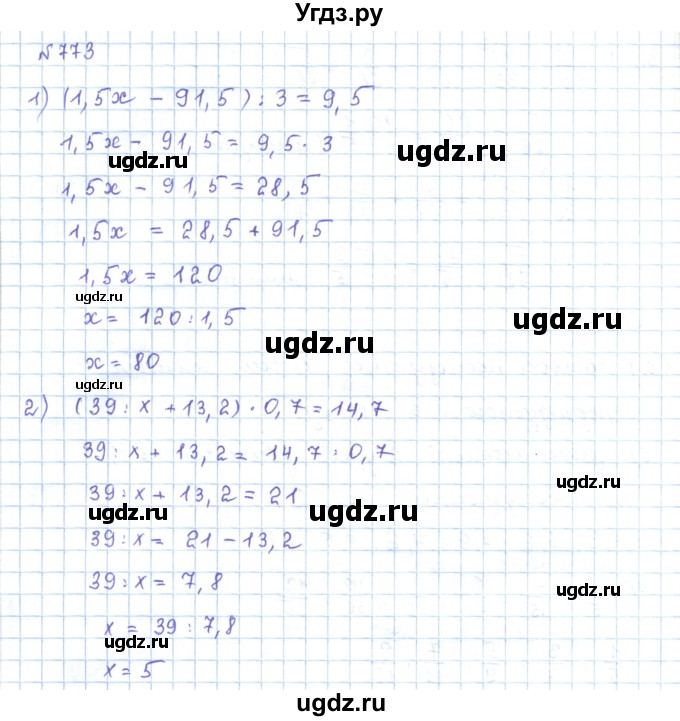 Угдз.ру
№773
1) (1,5x - 91,5) : 3 = 9,5
1,5x - 91,5 = 9,5 · 3
ugdz.ru
ugdz.ru
1,5x - 91,5 = 28,5
1,5x = 28,5 + 91,5
1,5x = 120
ugdz.ru
x = 120 : 1,5
ugdz.ru
ugdz.ru
x = 80
ugdz.ru
2) (39 : x + 13,2) · 0,7 = 14,7
39 : x + 13,2 = 14,7 : 0,7
ugdz.ru
39 : x + 13,2 = 21
ugdz.ru
ugdz.ru
39 : x = 21 - 13,2
39 : x = 7,8
ugdz.ru
x = 39 : 7,8
ugdz.ru
x = 5
ugdz.ru